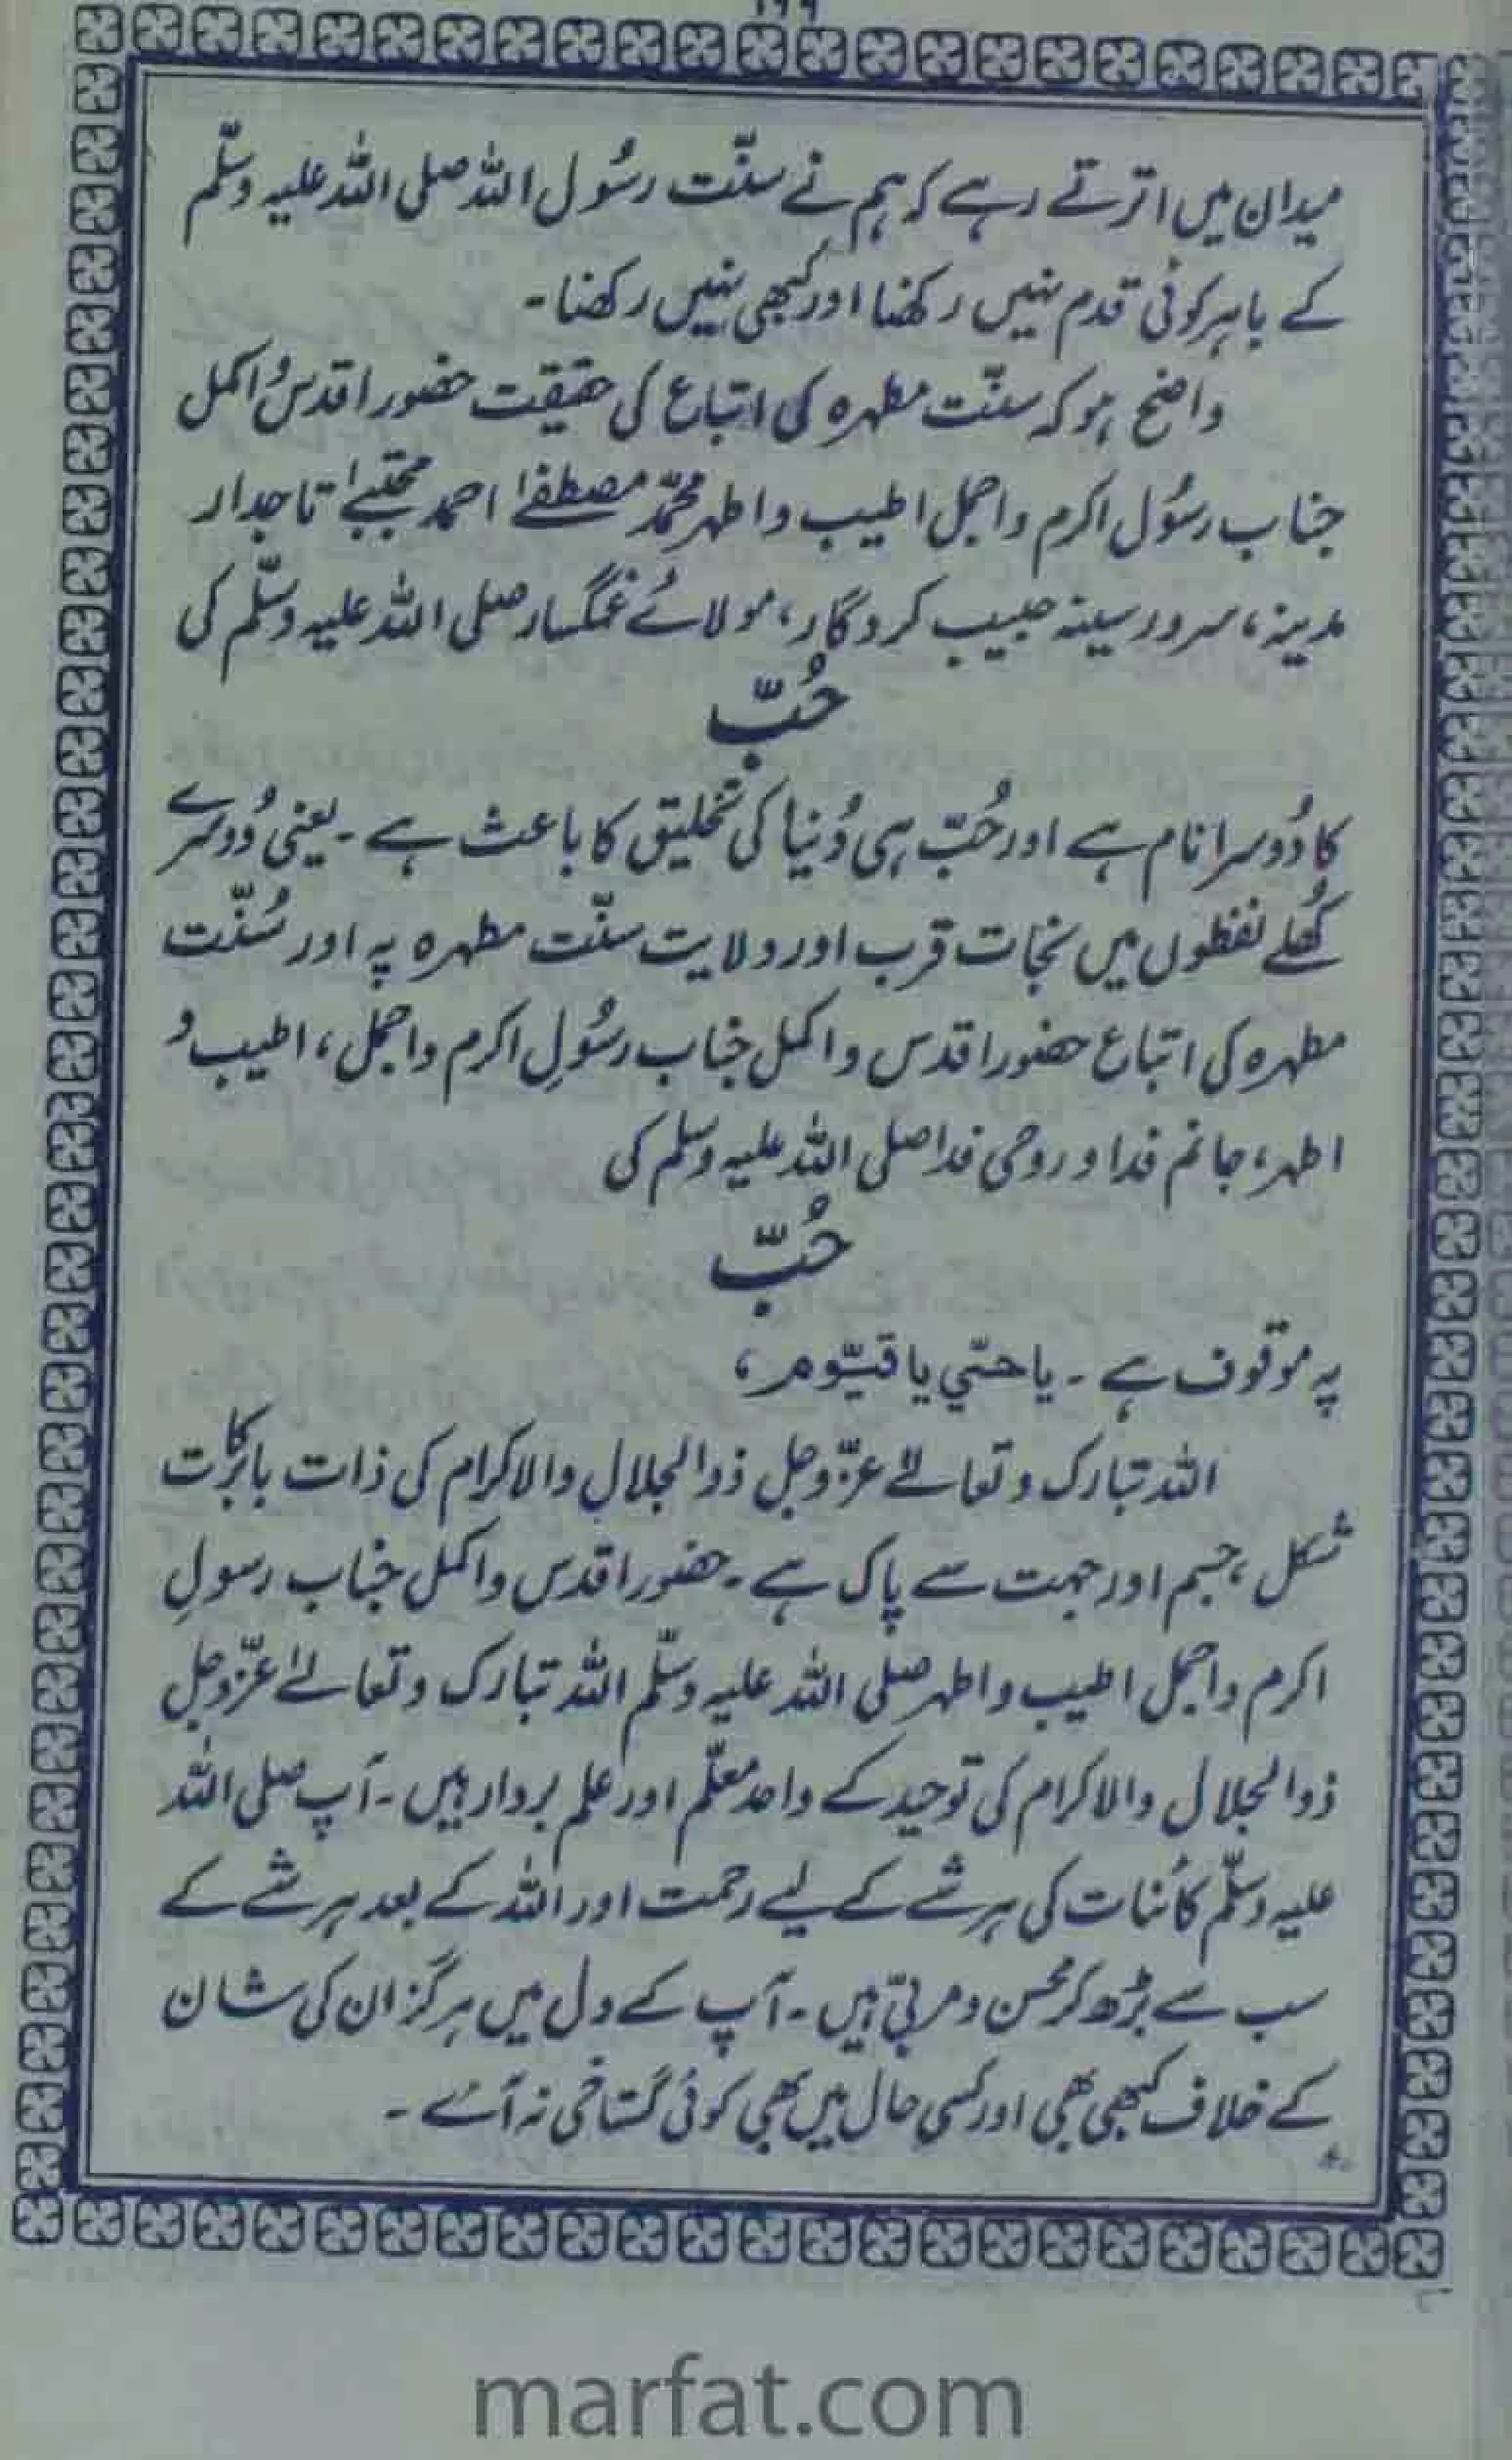 میدان میں اترتے رہے کہ ہم نے سنّت رسُول اللہ صلی اللہ علیہ وسلّم
کے باہر کوئی قدم نہیں رکھنا اور کبھی نہیں رکھنا۔
واضح ہو کہ سنّت مطہرہ کی اتباع کی حقیقت حضور اقدس و اکمل
جناب رسُول اکرم و اجمل اطیب و اطہر محمّد مصطفےٰ احمد مجتبےٰ تاجدار
مدینہ، سرور سینہ حبیب کردگار، مولائے غمگسار صلی اللہ علیہ وسلّم کی
حُبّ
کا دُوسرا نام ہے اور حُبّ ہی دُنیا کی تخلیق کا باعث ہے۔ یعنی دُوسرے
کُھلے لفظوں میں نجات قرب اور ولایت سنّت مطہرہ پہ اور سُنّت
مطہرہ کی اتباع حضور اقدس و اکمل جناب رسُولِ اکرم و اجمل، اطیب و
اطہر، جانم فدا و روحی فدا صلی اللہ علیہ وسلم کی
حُبّ
پہ موقوف ہے۔ یا حیّ یا قیّوم،
اللہ تبارک و تعالےٰ عزّ و جل ذوالجلال والاکرام کی ذات بابرکات
شکل، جسم اور جہت سے پاک ہے۔ حضور اقدس و اکمل جناب رسولِ
اکرم و اجمل اطیب و اطہر صلی اللہ علیہ وسلّم اللہ تبارک و تعالےٰ عزّ و جل
ذوالجلال والاکرام کی توحید کے واحد معلّم اور علم بردار ہیں۔ آپ صلی اللہ
علیہ وسلّم کائنات کی ہر شے کے لیے رحمت اور اللہ کے بعد ہر شے کے
سب سے بڑھ کر محسن و مربّی ہیں۔ آپ کے دل میں ہرگز ان کی شان
کے خلاف کبھی بھی اور کسی حال میں بھی کوئی گستاخی نہ آئے۔
marfat.com